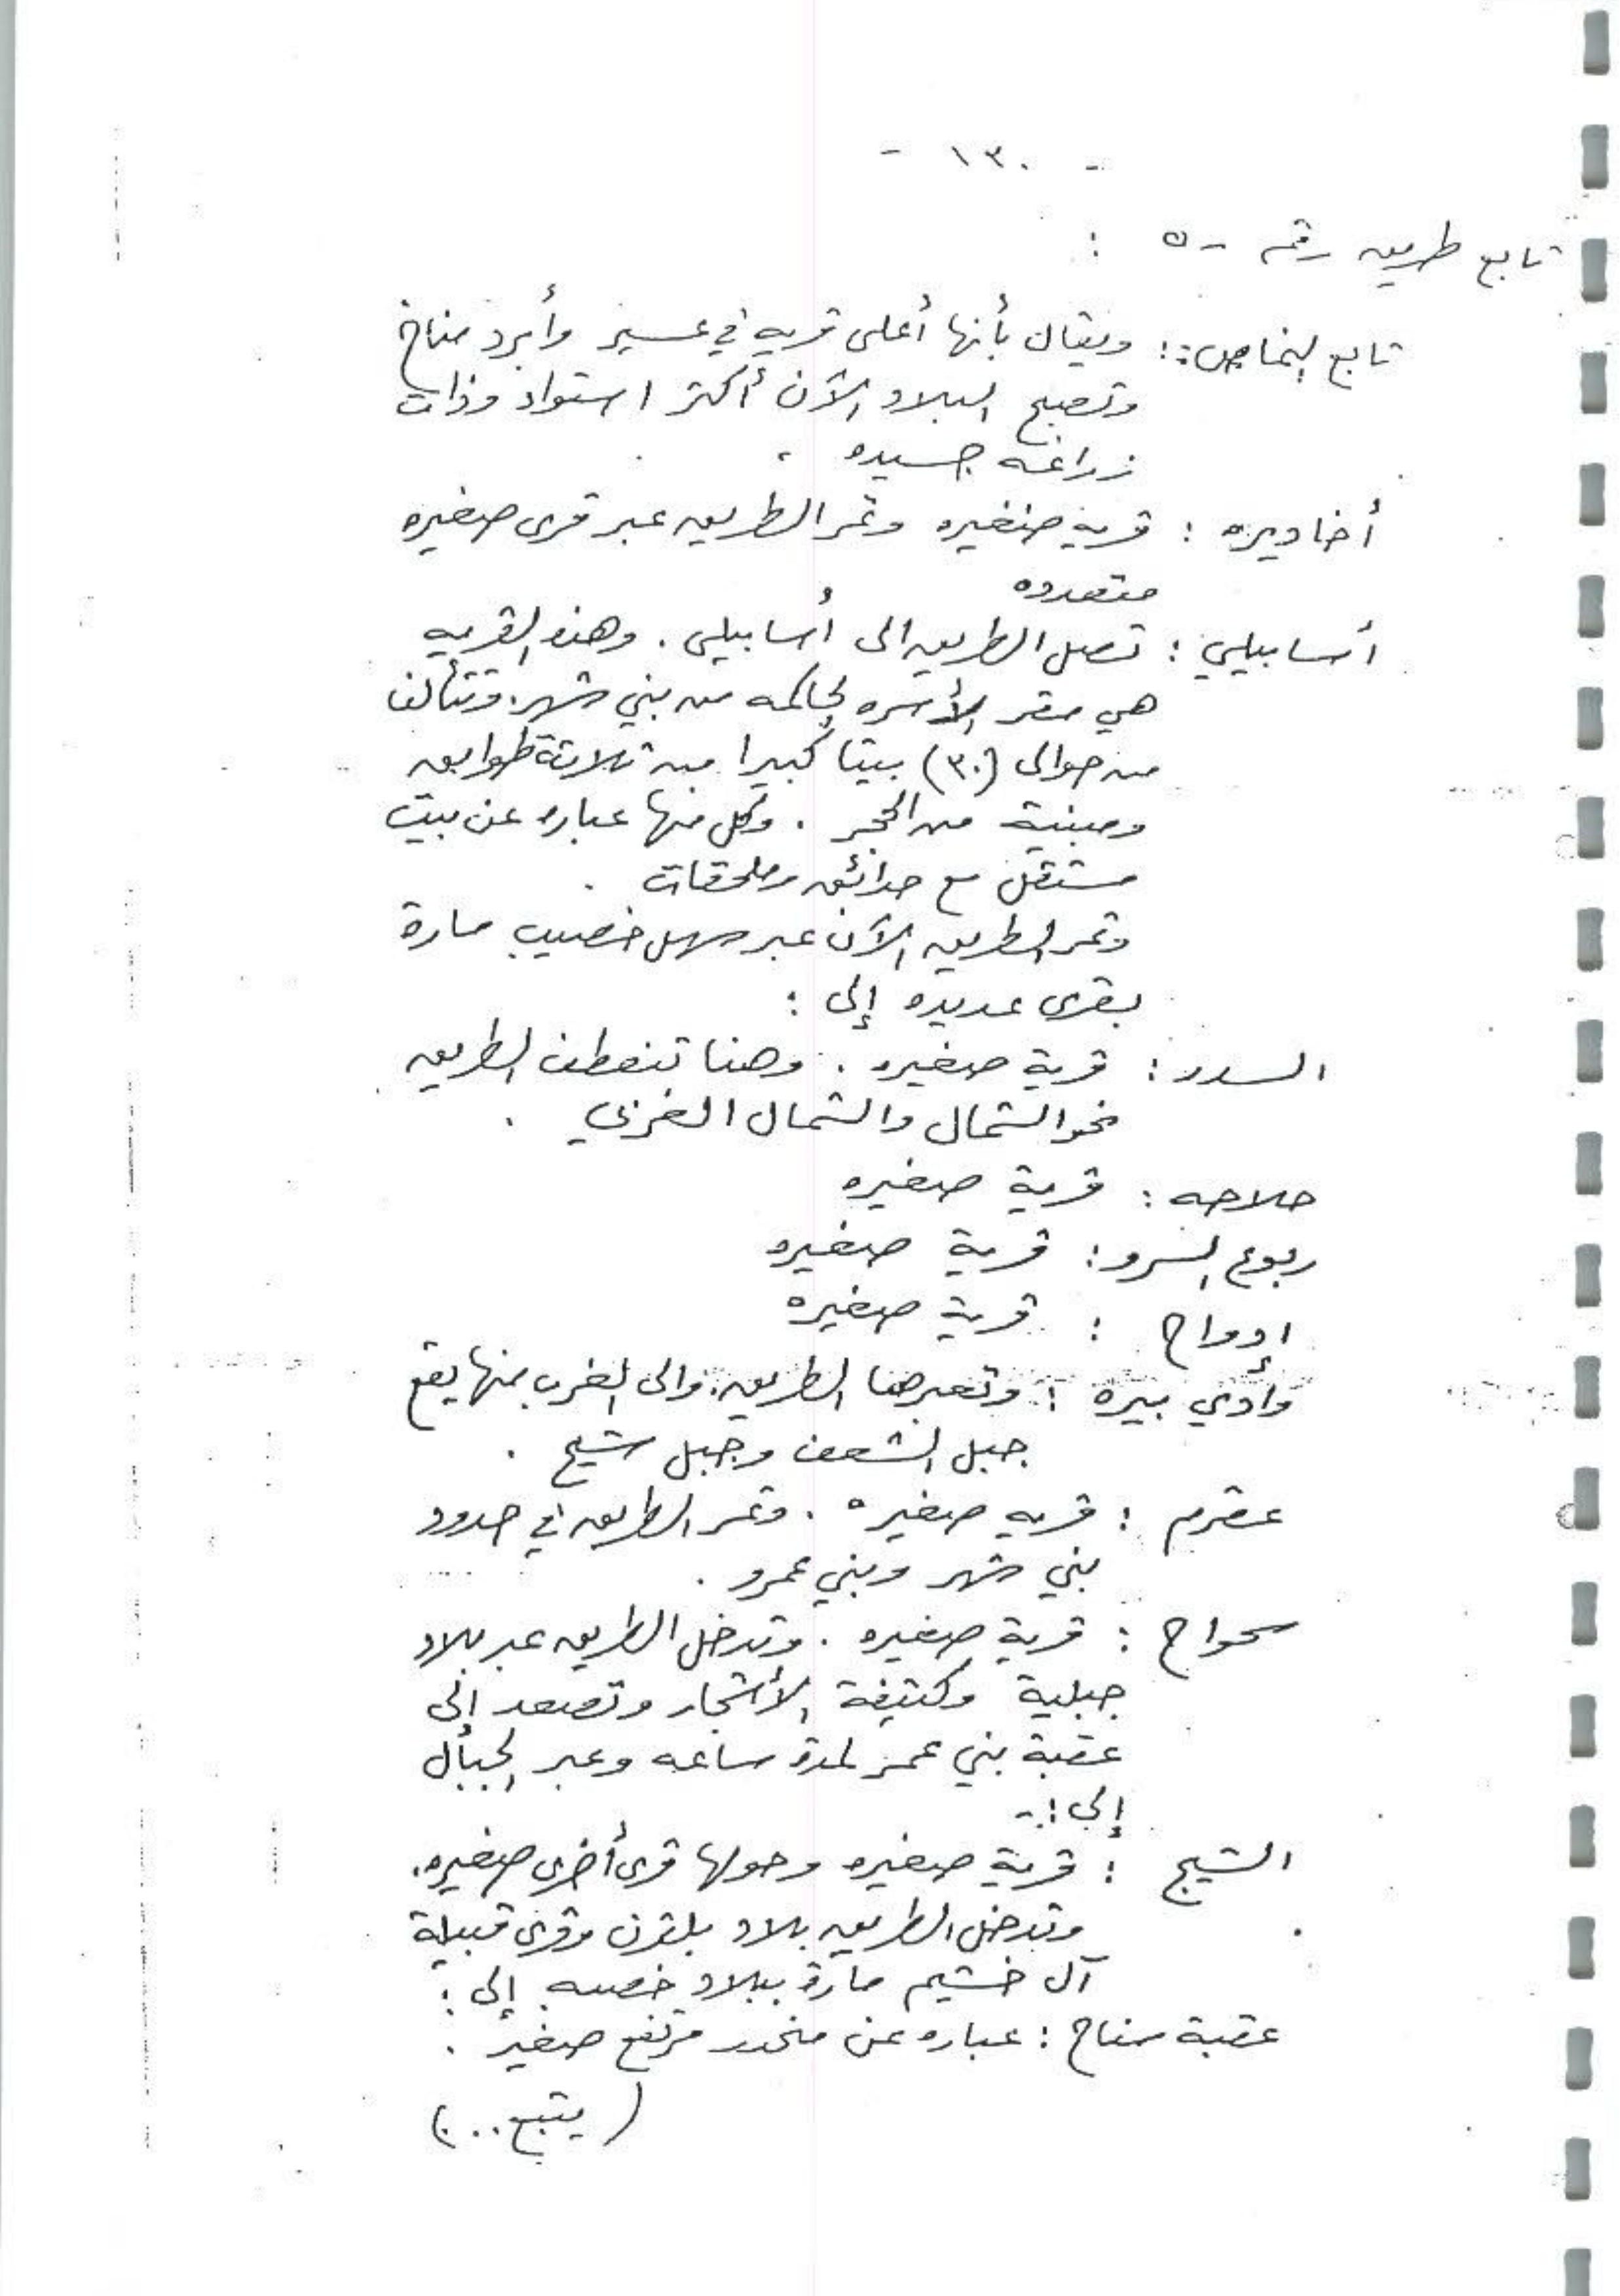 - ١٣٠ -
تابع طريق رقم - ٥ :
تابع النماص : ويقال بأنها أعلى قريه في عسير وأبرد مناخ
وتصبح البلاد الآن أكثر استواء وذات
زراعه جيده .
أخاديره : قريه صغيره وتمر الطريق عبر قرى صغيره
متعدده
أسابيلي : تصل الطريق الى أسابيلي . وهذه القريه
هي مقر الأسره الحاكمه من بني شهر . وتتألف
من حوالى (٣٠) بيتا كبيرا من ثلاثة طوابق
ومبنية من الحجر . وكل منها عباره عن بيت
مستقل مع حدائق وملحقات .
وتمر الطريق الآن عبر سهل خصيب مارة
بقرى عديده إلى :
السدر : قرية صغيره . وهنا تنعطف الطريق
نحو الشمال والشمال الغربي .
حلاحه : قرية صغيره
ربوع السرو : قرية صغيره
إدواح : قرية صغيره
وادي بيره : وتعبرها الطريق . والى الغرب منها يقع
جبل الشعف وجبل شيح .
عقرم : قريه صغيره . وتمر الطريق في حدود
بني شهر وبني عمرو .
سحواح : قرية صغيره . وتدخل الطريق عبر بلاد
جبلية وكثيفة الأشجار وتصعد إلى
عقبة بني عمر لمدة ساعه وعبر الجبال
إلى :-
الشيح : قرية صغيره وحولها قرى أخرى صغيره .
وتدخل الطريق بلاد بلقرن وقرى قبيلة
آل خشيم مارة ببلاد خصبه إلى :
عقبة سناح : عباره عن منحدر مرتفع صغير .
( يتبع .. )